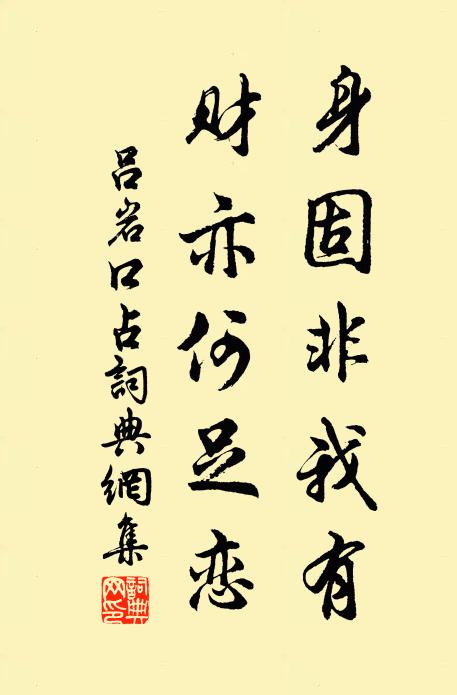 身固非我有
财亦何足恋
吕岩口占詞典網集
詞典网印